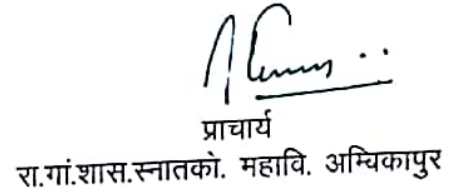 प्राचार्य
रा.गां.शास.स्नातको. महावि. अम्बिकापुर